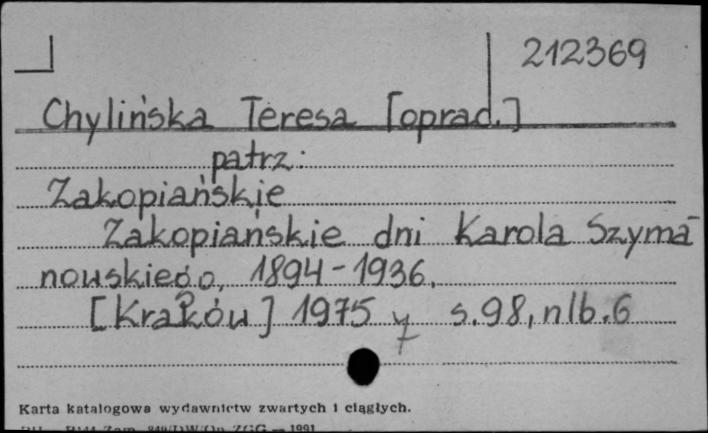 212369
Chylińska Teresa [oprac.]
patrz:
Zakopiańskie
Zakopiańskie dni Karola Szyma-
nowskiego, 1894-1936.
[Kraków] 1975 s.98, nlb.6
Karta katalogowa wydawnictw zwartych i ciągłych.
Zam. ZGG — 1991